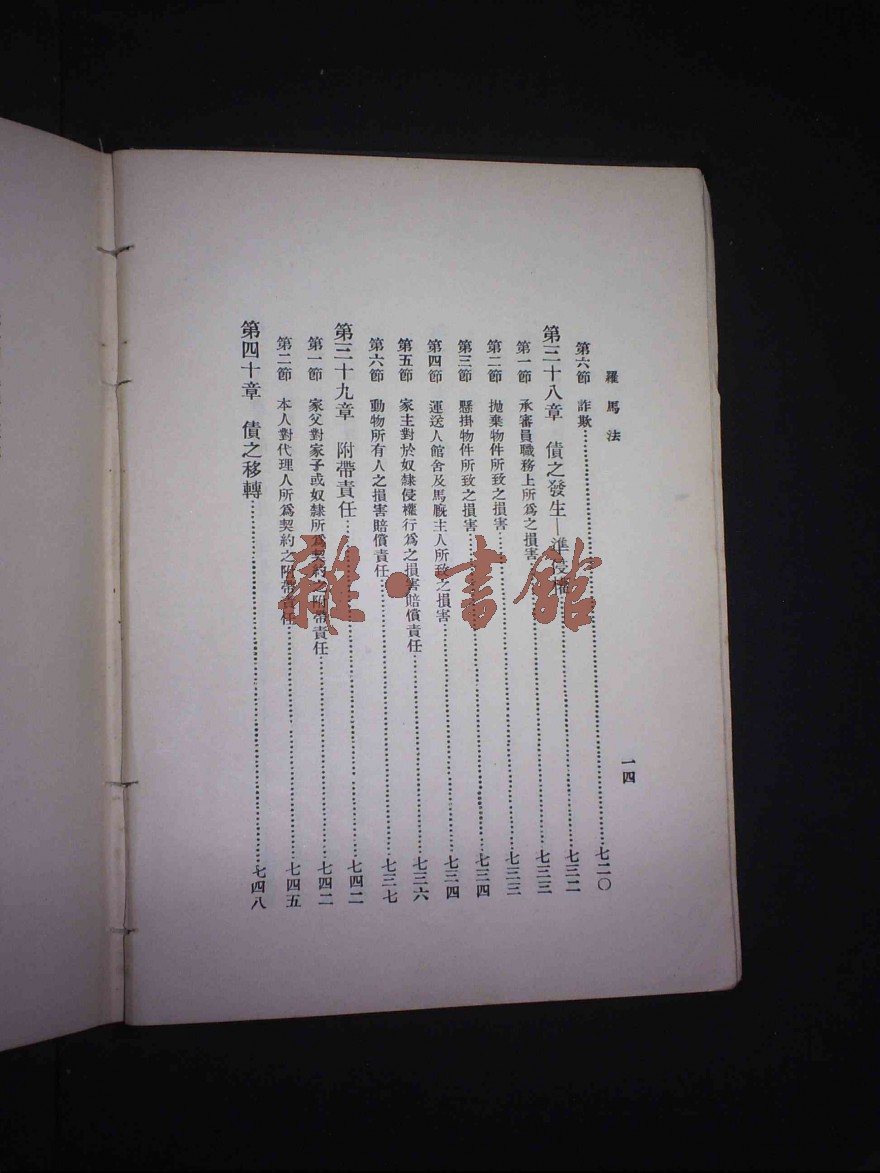 羅馬法
一四
第六節 詐欺……七二〇
第三十八章 債之發生—準侵權……七三二
第一節 承審員職務上所爲之損害……七三三
第二節 拋棄物件所致之損害……七三三
第三節 懸掛物件所致之損害……七三四
第四節 運送人館舍及馬廐主人所致之損害……七三四
第五節 家主對於奴隸侵權行爲之損害賠償責任……七三六
第六節 動物所有人之損害賠償責任……七三七
第三十九章 附帶責任……七四二
第一節 家父對家子或奴隸所爲契約之附帶責任……七四二
第二節 本人對代理人所爲契約之附帶責任……七四五
第四十章 債之移轉……七四八
雜·書館